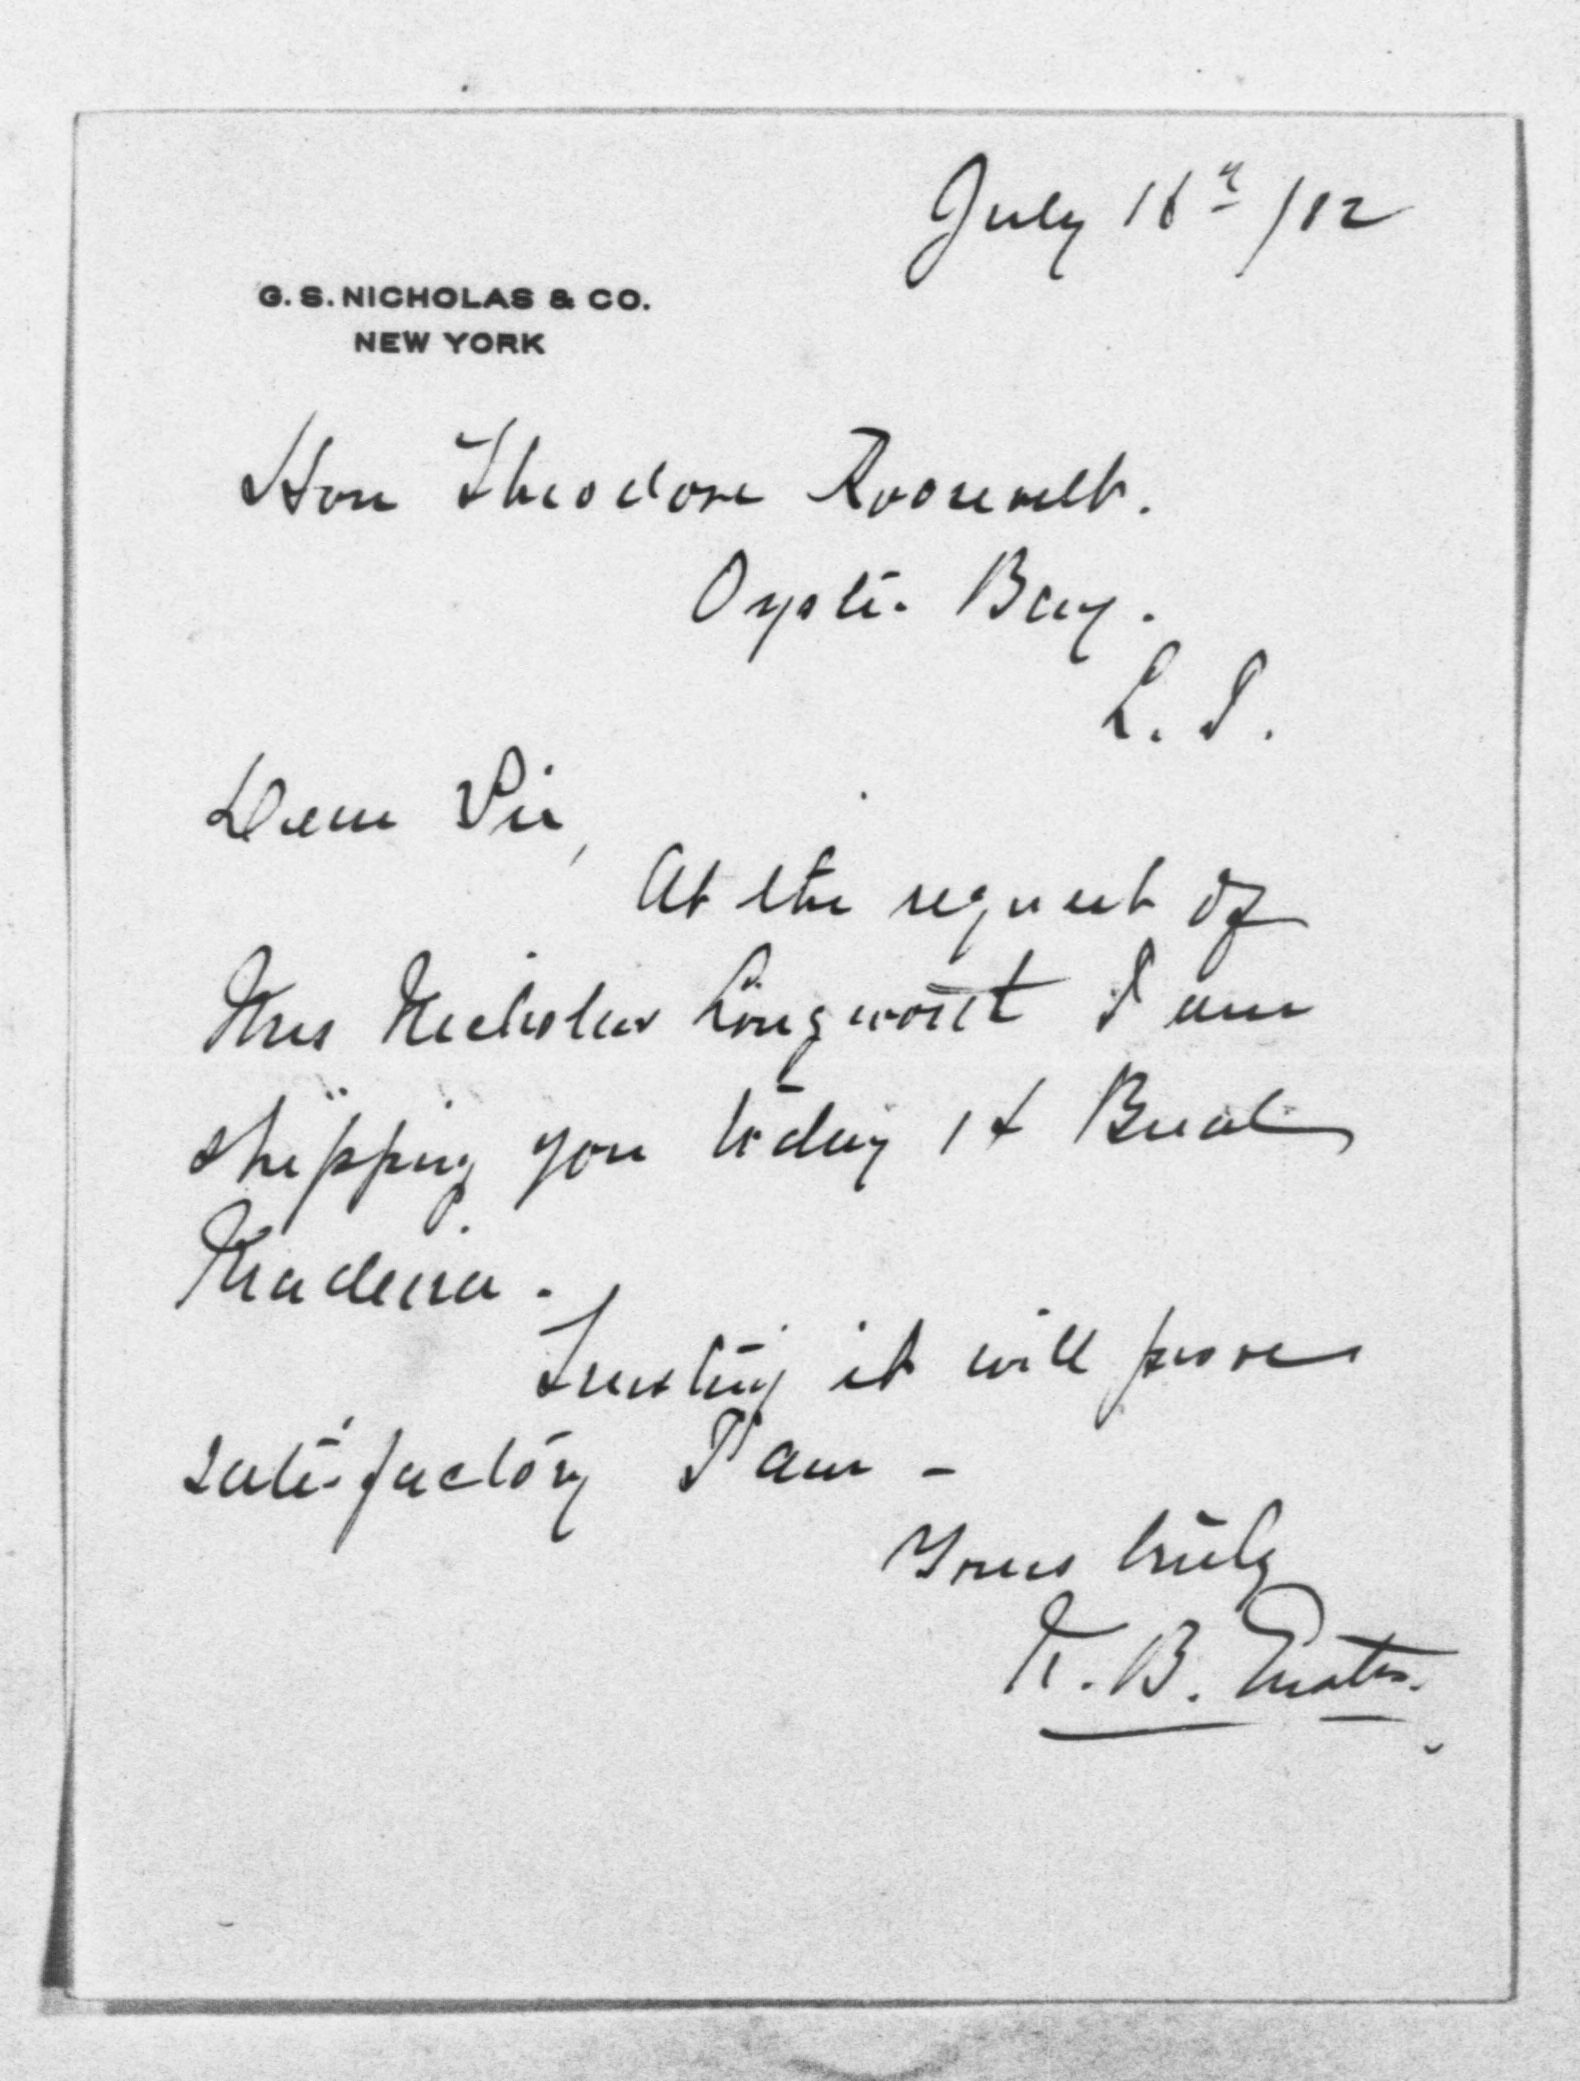 July 16th /12
G. S. NICHOLAS & CO.
NEW YORK
Hon Theodore Roosevelt.
Oyster Bay.
L. I.
Dear Sir,
At the request of
Mrs Nicholas Longworth I am
shipping you today 1
Madeira.
Trusting it will prove
satisfactory I am -
Yours truly
B.